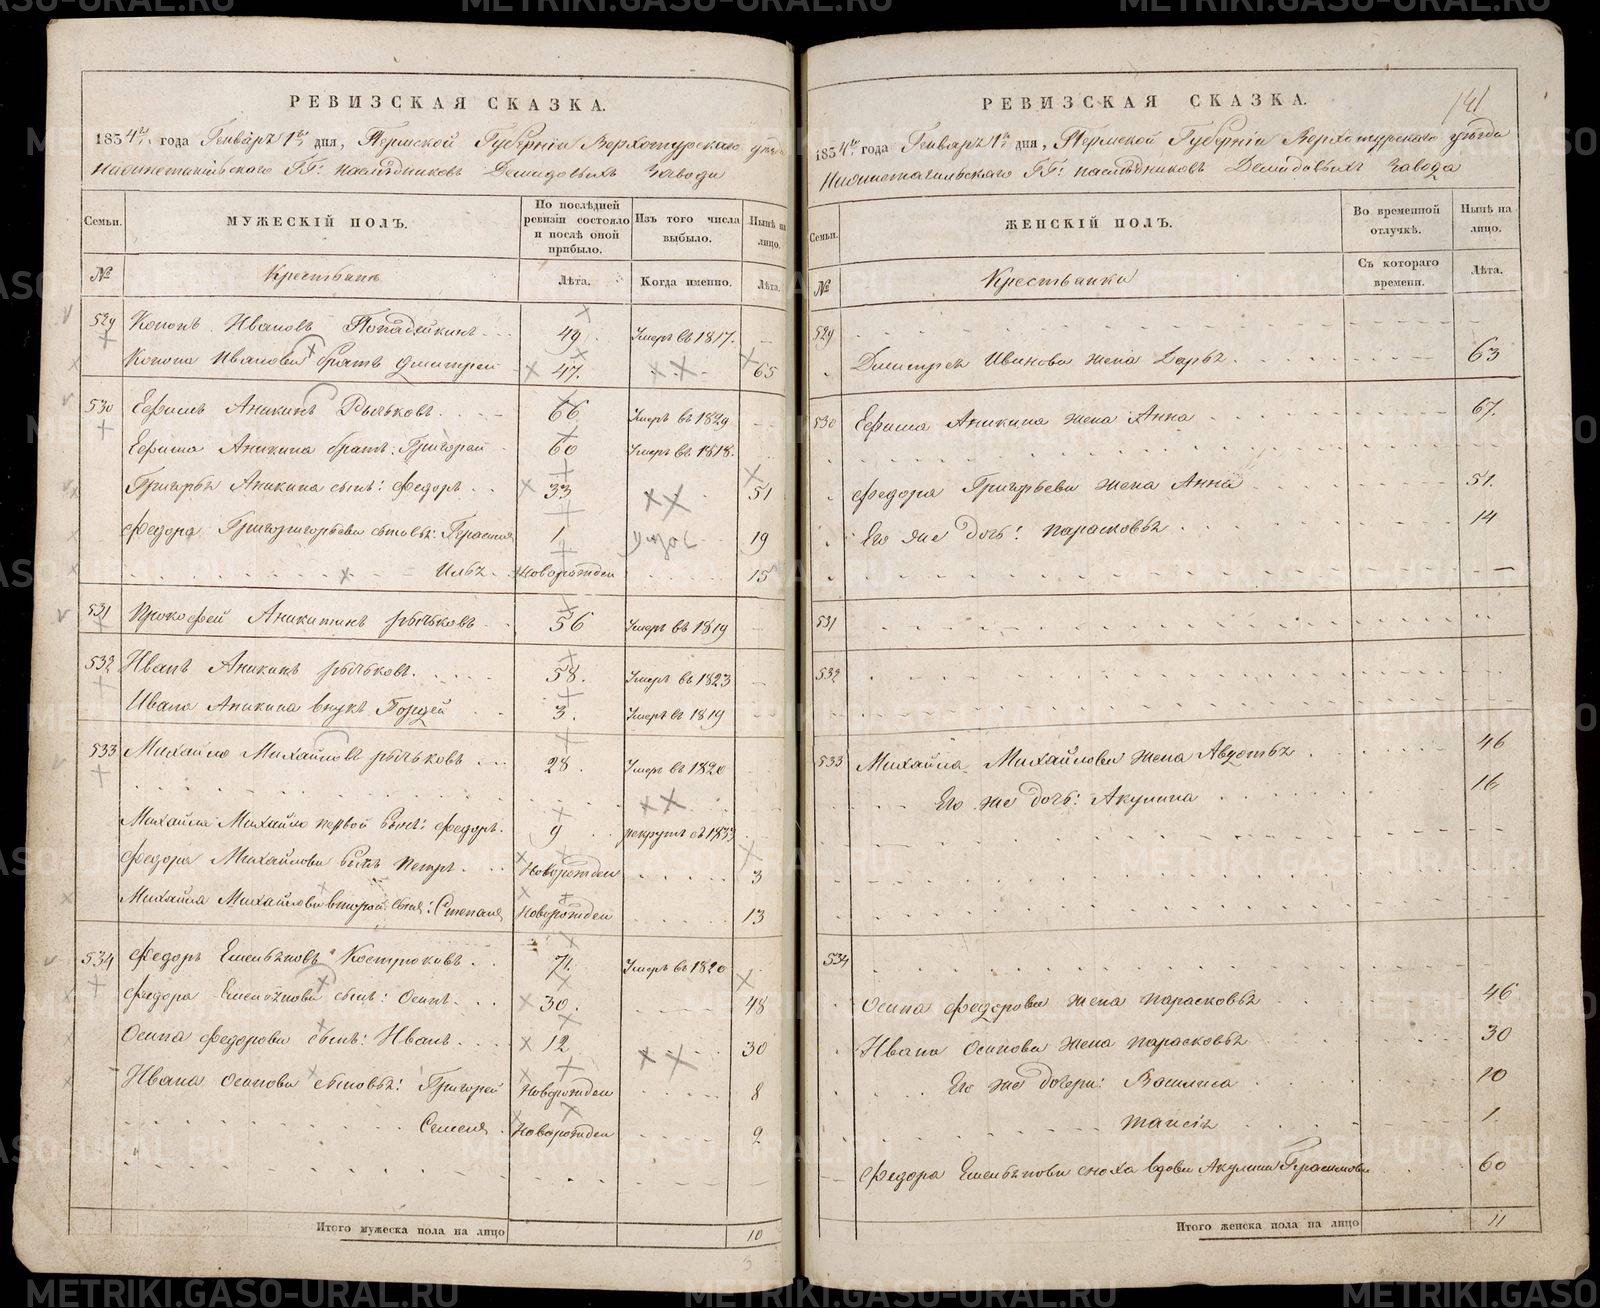 РЕВИЗСКАЯ СКАЗКА.
1834го года Генваря 1го дня, Пермской Губернiи Верхотурскаго уѣзда
Нижнетагильскаго ГГ: наслѣдниковъ Демидовыхъ Завода
Семьи.
МУЖЕСКIЙ ПОЛЪ.
По послѣдней ревизiи состояло и послѣ оной прибыло.
Изъ того числа выбыло.
Нынѣ на лицо.
№
Крестьяне
Лѣта.
Когда именно.
Лѣта.
529 Кононъ Ивановъ 49 Умеръ въ 1817.
Конона Иванова братъ Дмитрей 47. 65
530 Ефимъ Аникинъ Рычьковъ. 66 Умеръ въ 1829
Ефима Аникина братъ: Григорей 60 Умеръ въ 1818.
Григорья Аникина сынъ: Федоръ 33 51
Федора сыновья: 1 19
Илья Новорожден 15
531 Прокофей Аникинъ рычьковъ 56 Умеръ въ 1819
532 Иванъ Аникинъ рычьковъ. 58. Умеръ въ 1823
Ивана Аникина внукъ Гордей 3. Умеръ въ 1819
533 Михайло Михайловъ рычьковъ 28 Умеръ въ 1820
Михайла первой сынъ: Федоръ. 9 рекрутъ съ 1833
Федора Михайлова сынъ Петръ. Новорожден 3
Михайла Михайлова второй сынъ: Степанъ Новорожден 13
534 Федоръ Емельяновъ Костюковъ 71. Умеръ въ 1820
Федора Емельянова сынъ: Осипъ. 30. 48
Осипа Федорова сынъ: Иванъ. 12 30
Ивана Осипова сыновья: Григорей Новорожден 8
Семенъ Новорожден 2
Итого мужеска пола на лицо 10
3
141
РЕВИЗСКАЯ СКАЗКА.
1834го года Генваря 1го дня, Пермской Губернiи Верхотурскаго уѣзда
Нижнетагильскаго ГГ: наслѣдниковъ Демидовыхъ Завода
Семьи.
ЖЕНСКIЙ ПОЛЪ.
Во временной отлучкѣ.
Нынѣ на лицо.
№
Крестьянки
Съ котораго времени.
Лѣта.
529
Дмитрея Иванова жена Дарья 63
530 Ефима Аникина жена Анна 67.
Федора Григорьева жена Анна 51.
Его же дочь: парасковья 14
531
532
533 Михайла Михайлова жена Авдотья 46
Его же дочь: Акулина 16
534
Осипа Федорова жена парасковья 46
Ивана Осипова жена парасковья 30
Его же дочери: Василиса 10
Таисiя 1.
Федора Емельянова сноха вдова Акулина Герасимова 60
Итого женска пола на лицо 11
METRIKI.GASO-URAL.RU